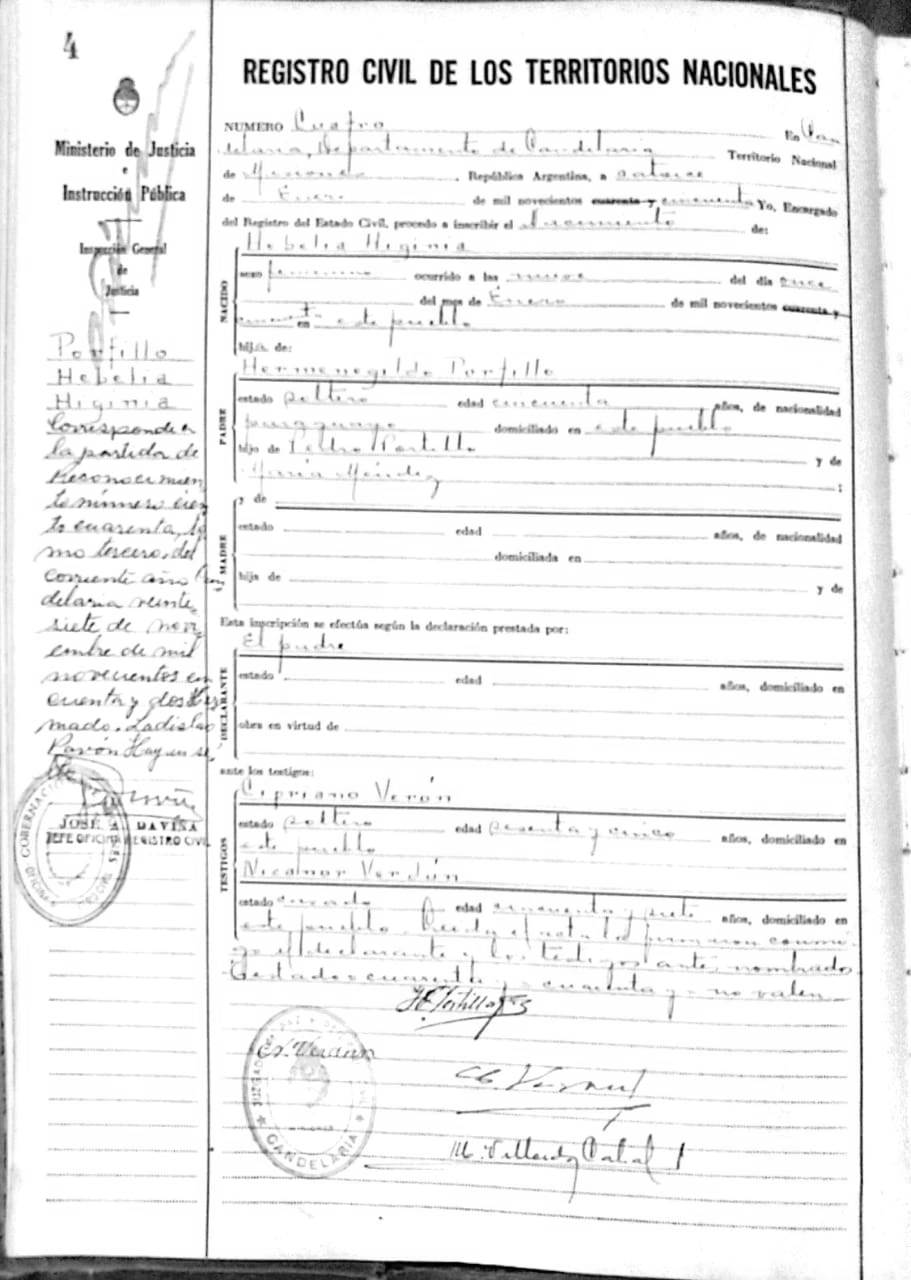 4
Ministerio de Justicia
e
Instrucción Pública
Inspección General
de
Justicia
Portillo
Hebelia
Higinia
Corresponde a
la partida de
Reconocimien
to número cien
to cuarenta, to
mo tercero, del
corriente año Can
delaria veinte
siete de novi
embre de mil
novecientos cin
cuenta y dos Fir
mado. Ladislao
Pavón Hay un se
llo
JOSE A. DAVIÑA
JEFE OFICINA REGISTRO CIVIL
GOBERNACION
OFICINA
REGISTRO CIVIL DE LOS TERRITORIOS NACIONALES
NUMERO Cuatro En Can
delaria, Departamento de Candelaria Territorio Nacional
de Misiones, República Argentina, a catorce
de Enero de mil novecientos cuarenta y cincuenta Yo, Encargado
del Registro del Estado Civil, procedo a inscribir el Nacimiento de:
NACIDO
Hebelia Higinia
sexo femenino ocurrido a las nueve del día once
del mes de Enero de mil novecientos cuarenta y
cincuenta en este pueblo
hija de:
PADRE
Hermenegildo Portillo
estado soltero edad cincuenta años, de nacionalidad
paraguayo domiciliado en este pueblo
hijo de Pedro Portillo y de
María Méndez ;
MADRE
y de
estado edad años, de nacionalidad
domiciliada en
hija de y de
Esta inscripción se efectúa según la declaración prestada por:
DECLARANTE
El padre
estado edad años, domiciliado en
obra en virtud de
ante los testigos:
TESTIGOS
Cipriano Verón
estado soltero edad sesenta y cinco años, domiciliado en
este pueblo
Nicanor Verdún
estado casado edad cincuenta y siete años, domiciliado en
este pueblo. Leída el acta la firmaron conmi
go el declarante y los testigos ante nombrado
Testados cuarenta y cuarenta y no valen
H Portillo
Verdún
JUZGADO DE PAZ
CANDELARIA